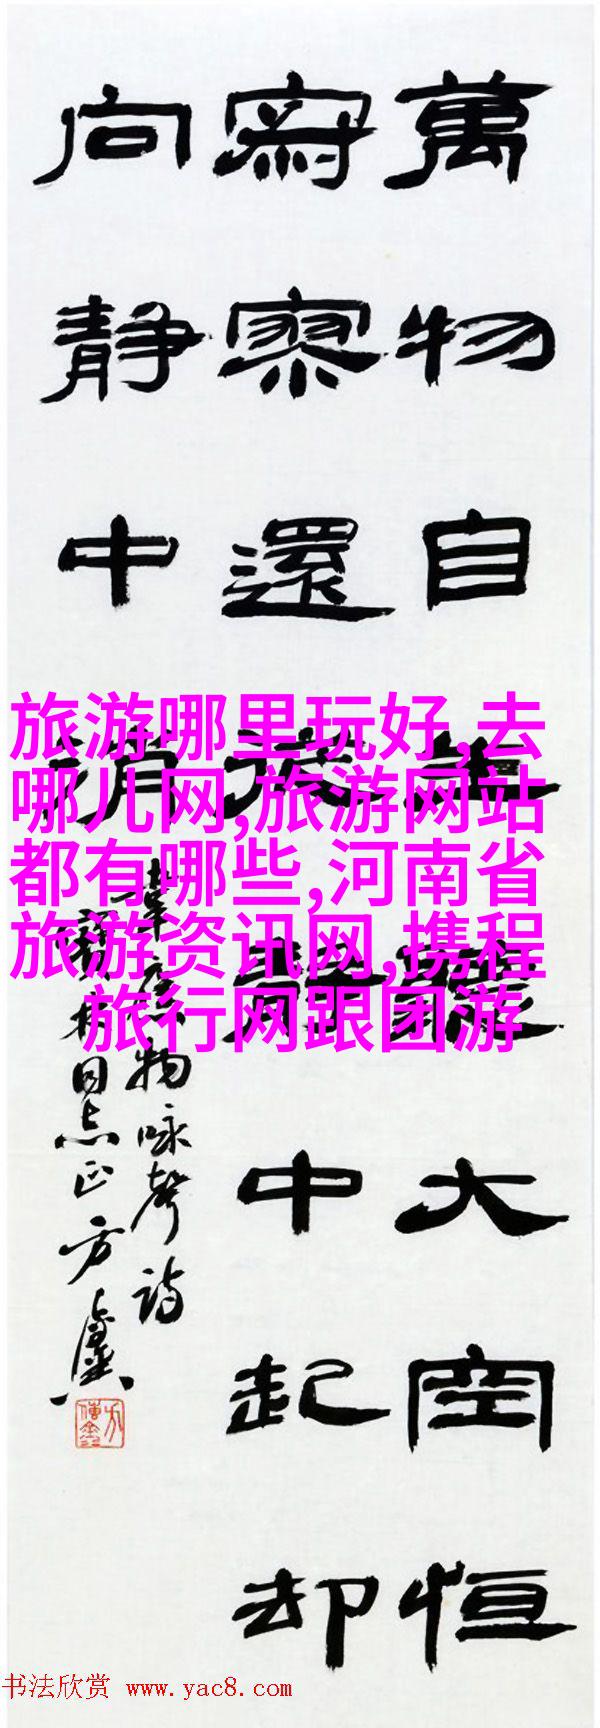 萬物自生大空恒
寂寥還中起却
向静中消
韋物咏聲詩
同志正方
旅游哪里玩好,去
哪儿网,旅游网站
都有哪些,河南省
旅游资讯网,携程
旅行网跟团游
书法欣赏 www.yac8.com